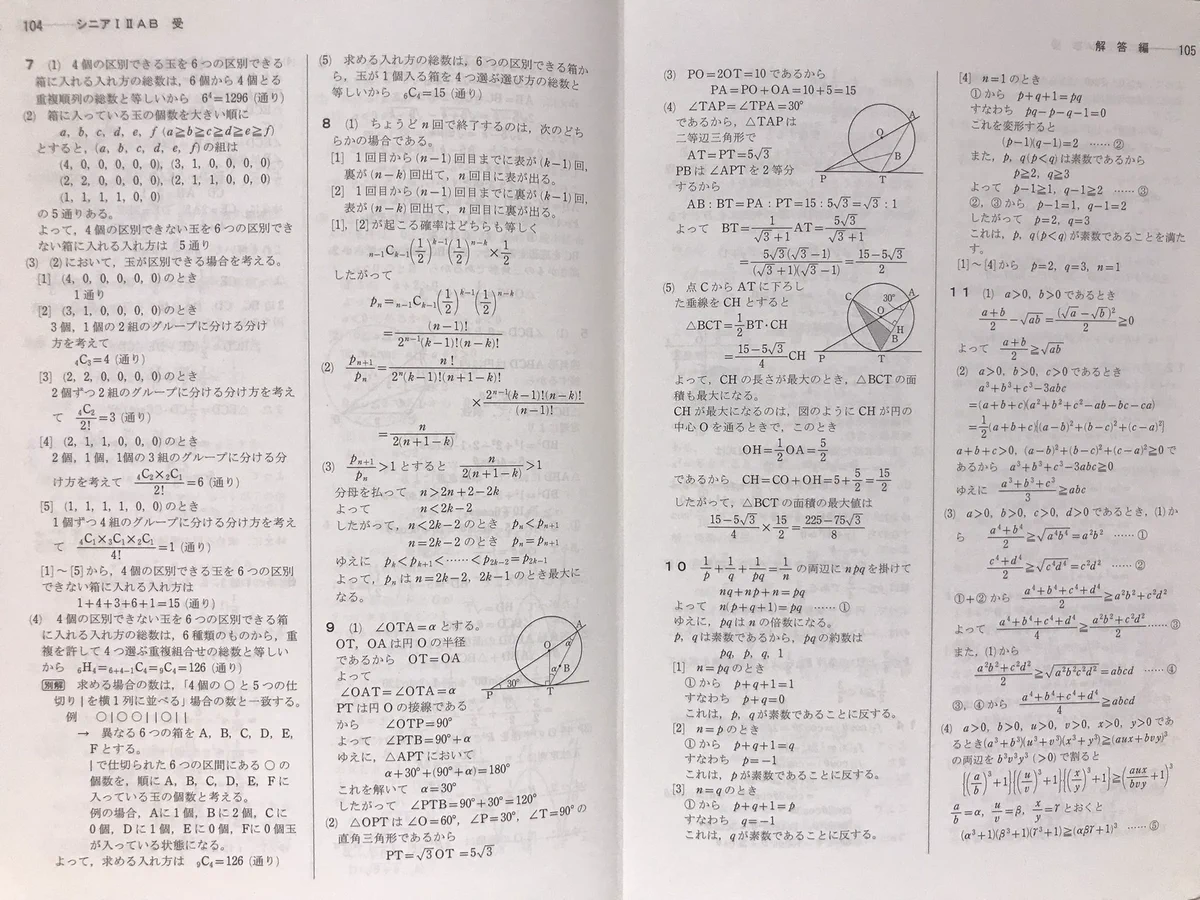 104 シニアⅠⅡAB 受
7 (1) 4個の区別できる玉を6つの区別できる
箱に入れる入れ方の総数は，6個から4個とる
重複順列の総数と等しいから 6⁴=1296 (通り)
(2) 箱に入っている玉の個数を大きい順に
a, b, c, d, e, f (a≧b≧c≧d≧e≧f)
とすると，(a, b, c, d, e, f)の組は
(4, 0, 0, 0, 0, 0), (3, 1, 0, 0, 0, 0)
(2, 2, 0, 0, 0, 0), (2, 1, 1, 0, 0, 0)
(1, 1, 1, 1, 0, 0)
の5通りある。
よって，4個の区別できない玉を6つの区別でき
ない箱に入れる入れ方は 5通り
(3) (2)において，玉が区別できる場合を考える。
[1] (4, 0, 0, 0, 0, 0)のとき
1通り
[2] (3, 1, 0, 0, 0, 0)のとき
3個，1個の2組のグループに分ける分け
方を考えて
₄C₃=4 (通り)
[3] (2, 2, 0, 0, 0, 0)のとき
2個ずつ2組のグループに分ける分け方を考え
て ₄C₂/2!=3 (通り)
[4] (2, 1, 1, 0, 0, 0)のとき
2個，1個，1個の3組のグループに分ける分
け方を考えて ₄C₂×₂C₁/2!=6 (通り)
[5] (1, 1, 1, 1, 0, 0)のとき
1個ずつ4組のグループに分ける分け方を考え
て ₄C₁×₃C₁×₂C₁/4!=1 (通り)
[1]～[5]から，4個の区別できる玉を6つの区別
できない箱に入れる入れ方は
1+4+3+6+1=15 (通り)
(4) 4個の区別できない玉を6つの区別できる箱
に入れる入れ方の総数は，6種類のものから，重
複を許して4つ選ぶ重複組合せの総数と等しい
から ₆H₄=₆₊₄₋₁C₄=₉C₄=126 (通り)
別解 求める場合の数は，「4個の○と5つの仕
切り|を横1列に並べる」場合の数と一致する。
例 ○|○○||○||
→ 異なる6つの箱をA, B, C, D, E,
Fとする。
|で仕切られた6つの区間にある○の
個数を，順にA, B, C, D, E, Fに
入っている玉の個数と考える。
例の場合，Aに1個，Bに2個，Cに
0個，Dに1個，Eに0個，Fに0個玉
が入っている状態になる。
よって，求める入れ方は ₉C₄=126 (通り)
(5) 求める入れ方の総数は，6つの区別できる箱か
ら，玉が1個入る箱を4つ選ぶ選び方の総数と
等しいから ₆C₄=15 (通り)
8 (1) ちょうどn回で終了するのは，次のどち
らかの場合である。
[1] 1回目から(n−1)回目までに表が(k−1)回,
裏が(n−k)回出て，n回目に表が出る。
[2] 1回目から(n−1)回目までに裏が(k−1)回,
表が(n−k)回出て，n回目に裏が出る。
[1], [2]が起こる確率はどちらも等しく
ₙ₋₁Cₖ₋₁(1/2)^(k−1)(1/2)^(n−k)×1/2
したがって
pₙ=ₙ₋₁Cₖ₋₁(1/2)^(k−1)(1/2)^(n−k)
=(n−1)!/2^(n−1)(k−1)!(n−k)!
(2) pₙ₊₁/pₙ=n!/2ⁿ(k−1)!(n+1−k)!
×2^(n−1)(k−1)!(n−k)!/(n−1)!
=n/2(n+1−k)
(3) pₙ₊₁/pₙ>1とすると n/2(n+1−k)>1
分母を払って n>2n+2−2k
よって n<2k−2
したがって，n<2k−2のとき pₙ<pₙ₊₁
n=2k−2のとき pₙ=pₙ₊₁
ゆえに pₖ<pₖ₊₁<……<p₂ₖ₋₂=p₂ₖ₋₁
よって，pₙはn=2k−2, 2k−1のとき最大に
なる。
9 (1) ∠OTA=αとする。
OT, OAは円Oの半径
であるから OT=OA
よって
∠OAT=∠OTA=α
PTは円Oの接線である
から ∠OTP=90°
よって ∠PTB=90°+α
ゆえに，△APTにおいて
α+30°+(90°+α)=180°
これを解いて α=30°
したがって ∠PTB=90°+30°=120°
A
O
α
α
B
30°
P
T
(2) △OPTは∠O=60°, ∠P=30°, ∠T=90°の
直角三角形であるから
PT=√3OT=5√3
解答編 105
(3) PO=2OT=10であるから
PA=PO+OA=10+5=15
(4) ∠TAP=∠TPA=30°
であるから，△TAPは
二等辺三角形で
AT=PT=5√3
PBは∠APTを2等分
するから
A
O
B
P
T
AB:BT=PA:PT=15:5√3=√3:1
よって BT=1/(√3+1)AT=5√3/(√3+1)
=5√3(√3−1)/(√3+1)(√3−1)=(15−5√3)/2
(5) 点CからATに下ろし
た垂線をCHとすると
△BCT=1/2BT・CH
=(15−5√3)/4CH
C
30°
A
O
H
B
P
T
よって，CHの長さが最大のとき，△BCTの面
積も最大になる。
CHが最大になるのは，図のようにCHが円の
中心Oを通るときで，このとき
OH=1/2OA=5/2
であるから CH=CO+OH=5+5/2=15/2
したがって，△BCTの面積の最大値は
(15−5√3)/4×15/2=(225−75√3)/8
10 1/p+1/q+1/pq=1/nの両辺にnpqを掛けて
nq+np+n=pq
よって n(p+q+1)=pq ……①
ゆえに，pqはnの倍数になる。
p, qは素数であるから，pqの約数は
pq, p, q, 1
[1] n=pqのとき
①から p+q+1=1
すなわち p+q=0
これは，p, qが素数であることに反する。
[2] n=pのとき
①から p+q+1=q
すなわち p=−1
これは，pが素数であることに反する。
[3] n=qのとき
①から p+q+1=p
すなわち q=−1
これは，qが素数であることに反する。
[4] n=1のとき
①から p+q+1=pq
すなわち pq−p−q−1=0
これを変形すると
(p−1)(q−1)=2 ……②
また，p, q(p<q)は素数であるから
p≧2, q≧3
よって p−1≧1, q−1≧2 ……③
②, ③から p−1=1, q−1=2
したがって p=2, q=3
これは，p, q(p<q)が素数であることを満た
す。
[1]～[4]から p=2, q=3, n=1
11 (1) a>0, b>0であるとき
(a+b)/2−√ab=(√a−√b)²/2≧0
よって (a+b)/2≧√ab
(2) a>0, b>0, c>0であるとき
a³+b³+c³−3abc
=(a+b+c)(a²+b²+c²−ab−bc−ca)
=1/2(a+b+c){(a−b)²+(b−c)²+(c−a)²}
a+b+c>0, (a−b)²+(b−c)²+(c−a)²≧0で
あるから a³+b³+c³−3abc≧0
ゆえに (a³+b³+c³)/3≧abc
(3) a>0, b>0, c>0, d>0であるとき，(1)か
ら (a⁴+b⁴)/2≧√a⁴b⁴=a²b² ……①
(c⁴+d⁴)/2≧√c⁴d⁴=c²d² ……②
①+②から (a⁴+b⁴+c⁴+d⁴)/2≧a²b²+c²d²
よって (a⁴+b⁴+c⁴+d⁴)/4≧(a²b²+c²d²)/2 ……③
また，(1)から
(a²b²+c²d²)/2≧√a²b²c²d²=abcd ……④
③, ④から (a⁴+b⁴+c⁴+d⁴)/4≧abcd
(4) a>0, b>0, u>0, v>0, x>0, y>0であ
るとき(a³+b³)(u³+v³)(x³+y³)≧(aux+bvy)³
の両辺をb³v³y³ (>0)で割ると
{(a/b)³+1}{(u/v)³+1}{(x/y)³+1}≧(aux/bvy+1)³
a/b=α, u/v=β, x/y=γとおくと
(α³+1)(β³+1)(γ³+1)≧(αβγ+1)³ ……⑤